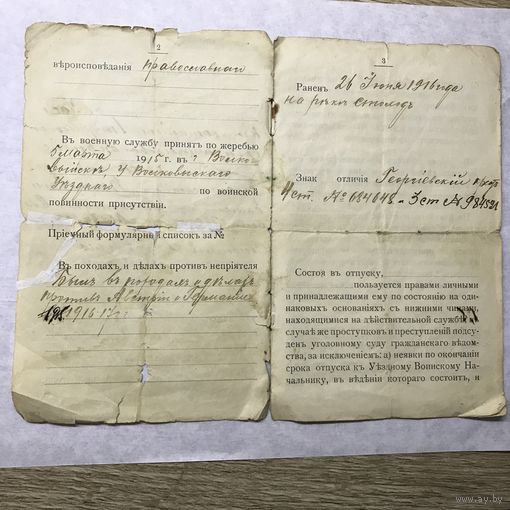 2
вѣроисповѣданія православнаго
Въ военную службу принятъ по жеребью
5 марта 1915 г. въ
Волковыскаго
Уѣзднаго по воинской
повинности присутствіи.
Пріемный формулярный списокъ за №
Въ походахъ и дѣлахъ противъ непріятеля
Былъ въ походахъ и дѣлахъ
противъ Австріи и Германіи
3
Раненъ 26 Іюня 1916 года
на рѣкѣ Стоходъ
Знак отличія Георгіевскій крестъ
4 ст. № 684648 и 3 ст №
Состоя въ отпуску,
пользуется правами личными
и принадлежащими ему по состоянію на оди-
наковыхъ основаніяхъ съ нижними чинами,
находящимися на дѣйствительной службѣ; въ
случаѣ же проступковъ и преступленій подсу-
денъ уголовному суду гражданскаго вѣдомс-
тва, за исключеніемъ: а) неявки по окончаніи
срока отпуска къ Уѣздному Воинскому На-
чальнику, въ вѣдѣніи котораго состоитъ, и
www.ay.by